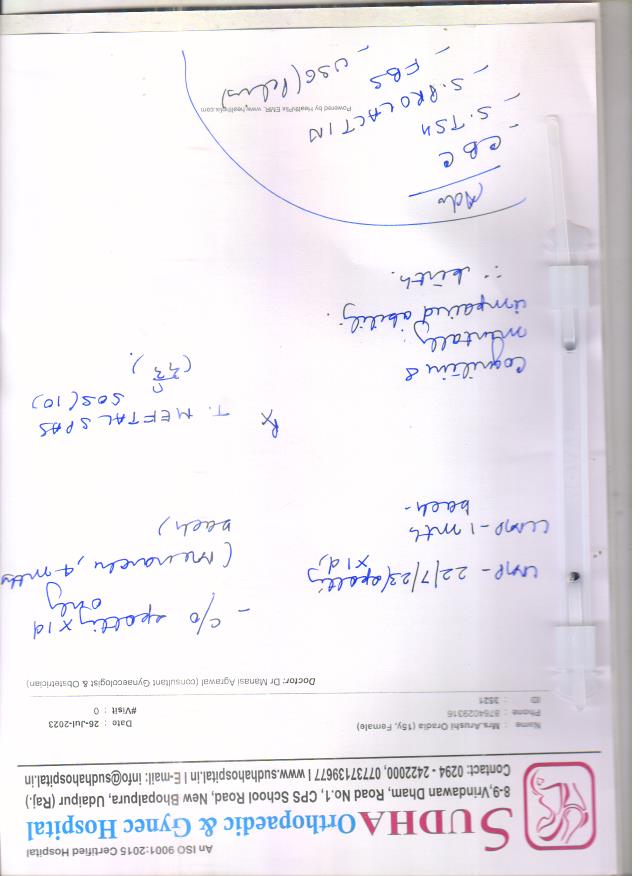 An ISO 9001:2015 Certified Hospital
SUDHA Orthopaedic & Gynec Hospital
8-9,Vrindawan Dham, Road No.1, CPS School Road, New Bhopalpura, Udaipur (Raj.)
Contact: 0294 - 2422000, 07737139677 I www.sudhahospital.in I E-mail: info@sudhahospital.in
Name : Mrs.Arushi Oradia (15y, Female)
Date : 26-Jul-2023
Phone : 8764029316
#Visit : 0
ID : 3521
Doctor: Dr Manasi Agrawal (consultant Gynaecologist & Obstetrician)
- c/o spotting x 1d
only
(menarche, 4 mths
back)
LMP - 22/7/23 (spotting
x 1d)
LLMP - 1 mth
back -
Rx
T. MEFTAL SPAS
SOS (10)
Cognitive &
mentally
impaired ability.
∵ birth.
Adv
- CBC
- S. TSH
- S. PROLACTIN
- FBS
- USG (Pelvis)
Powered by HealthPlix EMR. www.healthplix.com